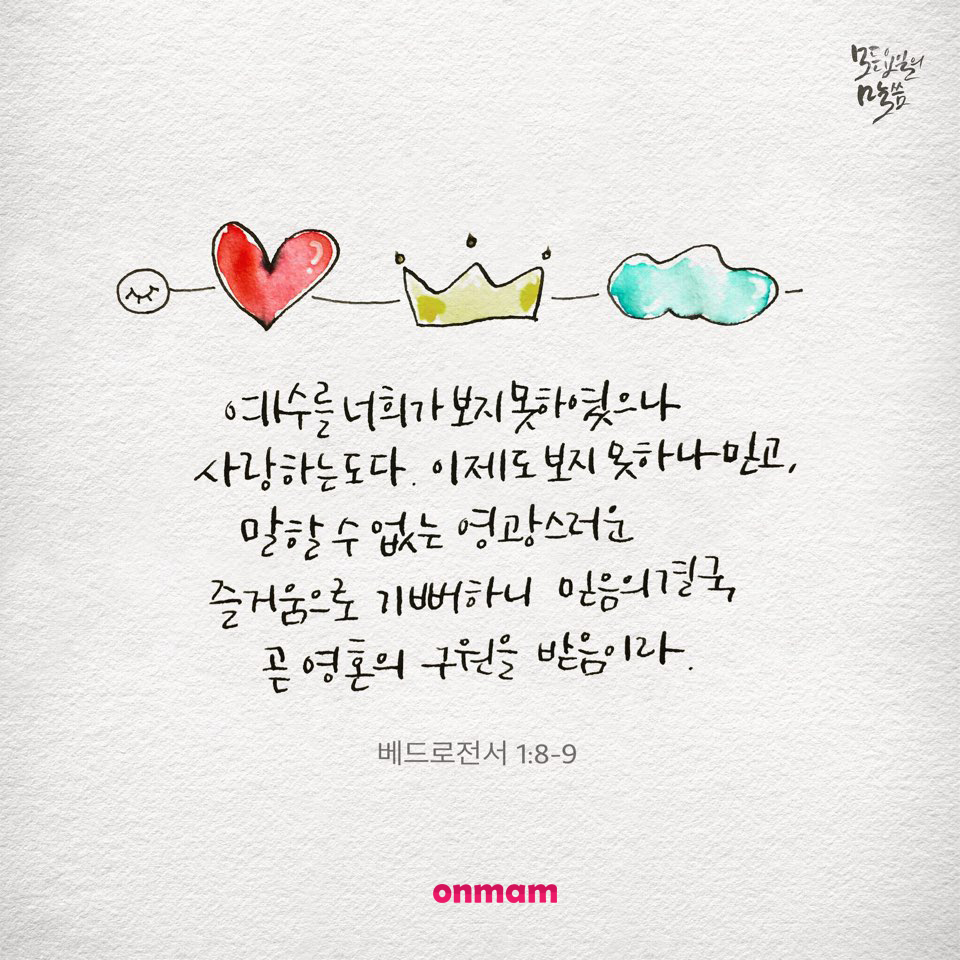 모든요일의
말씀
예수를 너희가 보지 못하였으나
사랑하는도다. 이제도 보지 못하나 믿고,
말할 수 없는 영광스러운
즐거움으로 기뻐하니 믿음의 결국
곧 영혼의 구원을 받음이라.
베드로전서 1:8-9
onmam